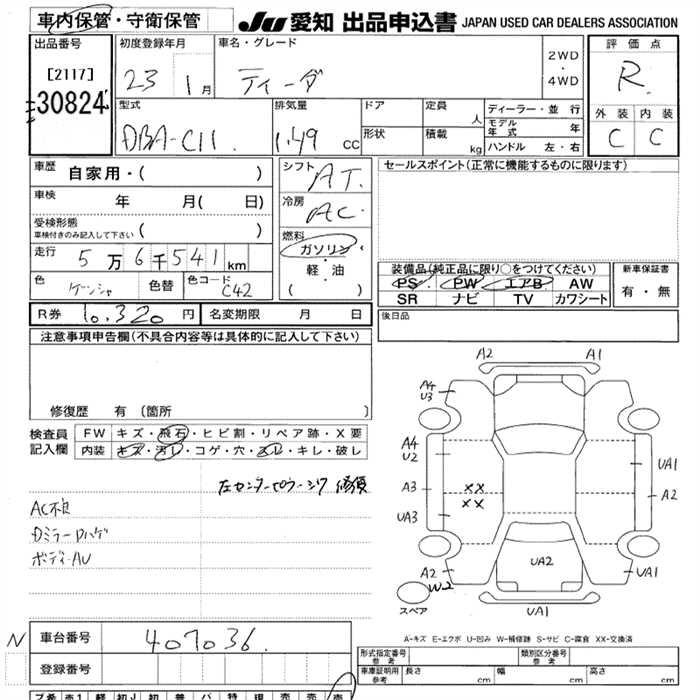 車内保管・守衛保管
JU 愛知 出品申込書 JAPAN USED CAR DEALERS ASSOCIATION
出品番号 初度登録年月 車名・グレード 評価点
[2117] 30824 23 1月 ティーダ 2WD・4WD R
外装 内装
C C
型式 排気量 ドア 定員 人 ディーラー・並行
DBA-C11 1.49 cc 形状 積載 kg モデル年式 年
ハンドル 左・右
車歴 自家用・( ) シフト AT セールスポイント(正常に機能するものに限ります)
車検 年 月( 日) 冷房 AC
受検形態 ( )
車検付きのみ記入して下さい
燃料 ガソリン・軽・油 ( )
走行 5万6千541km
装備品(純正品に限り○をつけてください) 新車保証書
PS PW エアB AW 有・無
SR ナビ TV カワシート
色 色替 色コード C42
R券 10,320円 名変期限 月 日 後日品
注意事項申告欄(不具合内容等は具体的に記入して下さい)
修復歴 有 〔箇所 〕
検査員記入欄 FW キズ・飛石・ヒビ割・リペア跡・X要
内装 キズ・汚レ・コゲ・穴・スレ・キレ・破レ
AC不良
ボディーAU
A2 A1
A4 U3
A4 U2 UA1
A3 XX A2
UA3 XX
UA2
A2 W2 UA1
スペア UA1
A-キズ E-エクボ U-凹み W-補修跡 S-サビ C-腐食 XX-交換済
N 車台番号 407036
登録番号
形式指定番号 参考 類別区分番号 参考
車庫証明用 参考 長さ cm 幅 cm 高さ cm